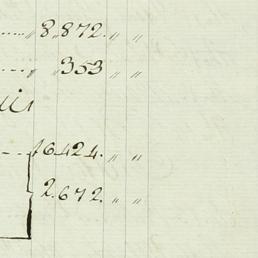 8,872. " "
" 353 " "
16.424. " "
2.672. " "